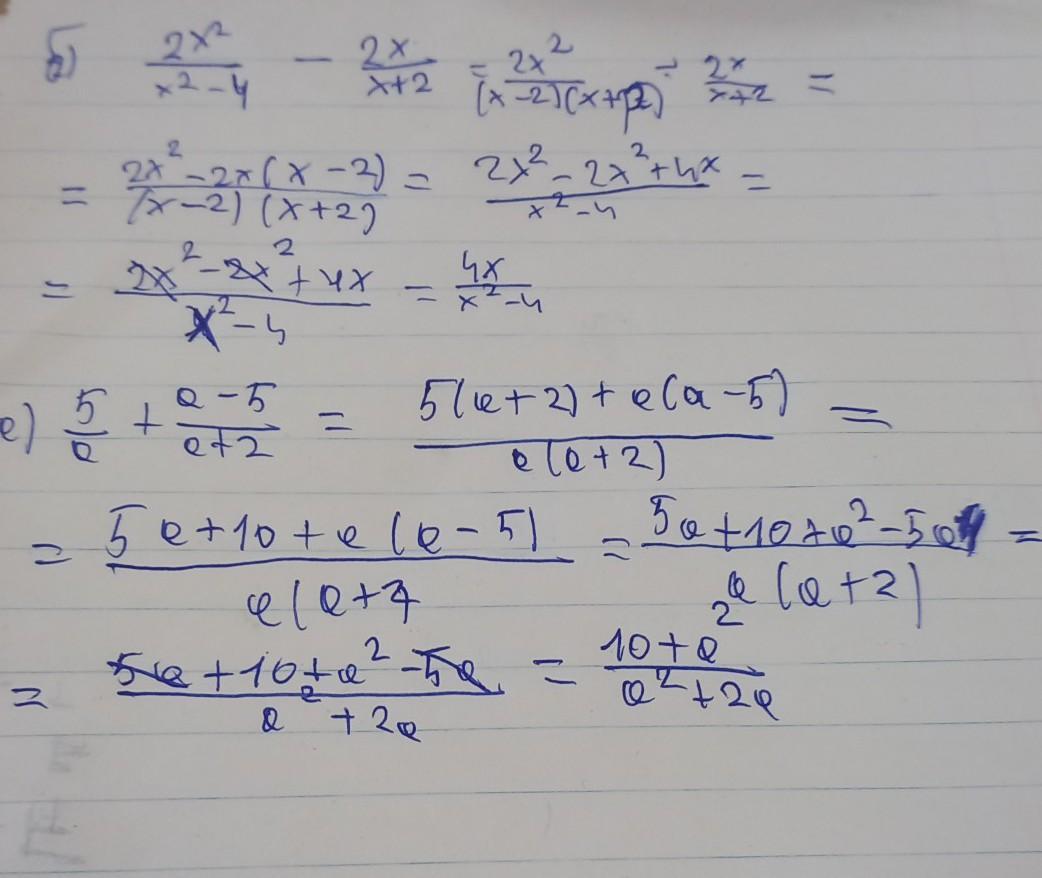 б) 2x²/(x²-4) - 2x/(x+2) = 2x²/((x-2)(x+2)) - 2x/(x+2) =
= (2x²-2x(x-2))/((x-2)(x+2)) = (2x²-2x²+4x)/(x²-4) =
= (2x²-2x²+4x)/(x²-4) = 4x/(x²-4)
е) 5/a + (a-5)/(a+2) = (5(a+2)+a(a-5))/(a(a+2)) =
= (5a+10+a(a-5))/(a(a+2 = (5a+10+a²-5a)/(a(a+2)) =
= (5a+10+a²-5a)/(a²+2a) = (10+a²)/(a²+2a)